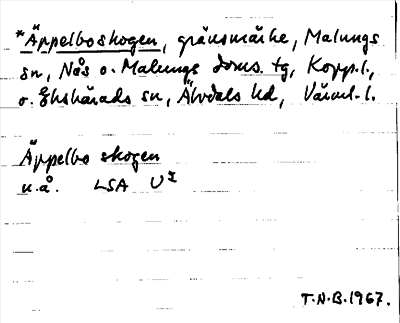 *Äppelboskogen, gränsmärke, Malungs
sn, Nås o. Malungs doms. tg, Kopp. l.,
o. Ekshärads sn, Älvdals hd, Värml. l.
Äppelbo skogen
u.å. LSA U I
T.N.B. 1967.